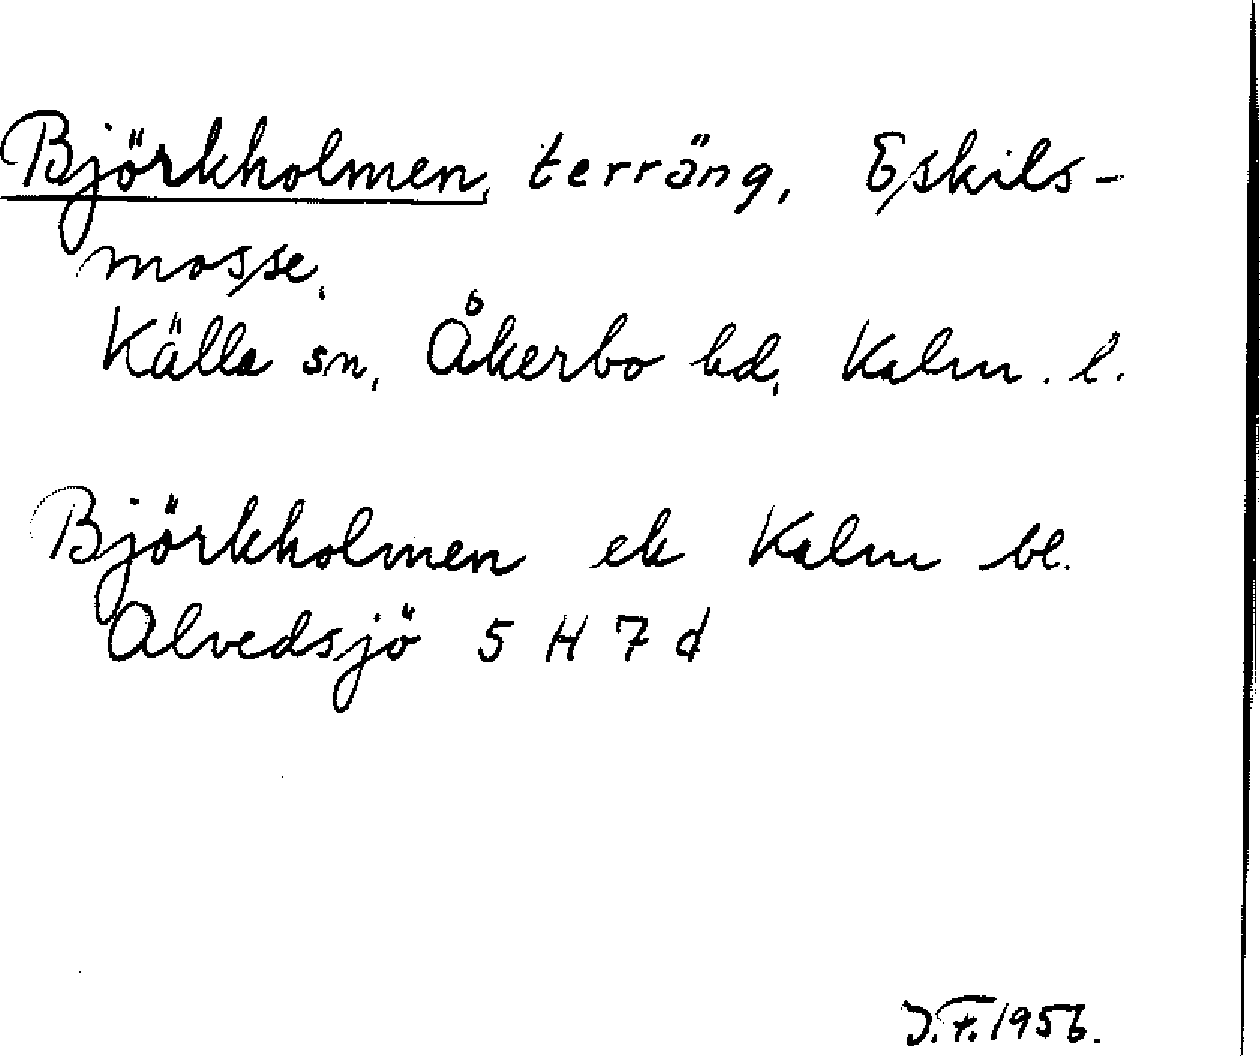 Björkholmen, terräng, Eskils-
mosse,
Källa sn, Åkerbo hd, Kalm. l.
Björkholmen ek Kalm bl.
Alvedsjö 5 H 7 d
J.F. 1956.